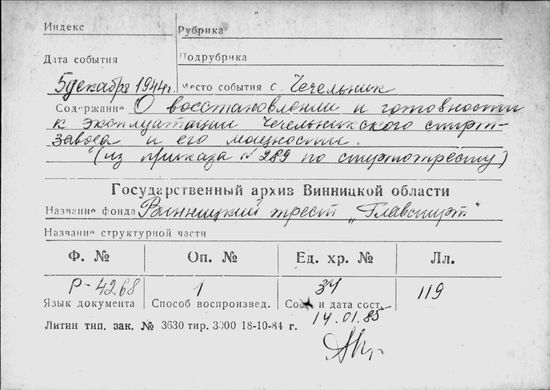 Индекс Рубрика
Дата события Подрубрика
5 декабря 1944 г. Место события с. Чечельник
Содержание О восстановлении и готовности
к эксплуатации Чечельникского спирт-
завода и его мощности.
(из приказа № 289 по спиртотресту)
Государственный архив Винницкой области
Название фонда Винницкий трест „Главспирт“
Название структурной части
Ф. № Оп. № Ед. хр. № Лл.
Р-4268 1 34 119
Язык документа Способ воспроизвед. и дата сост.
14.01.85
Литин тип. зак. № 3630 тир. 3000 18-10-84 г.